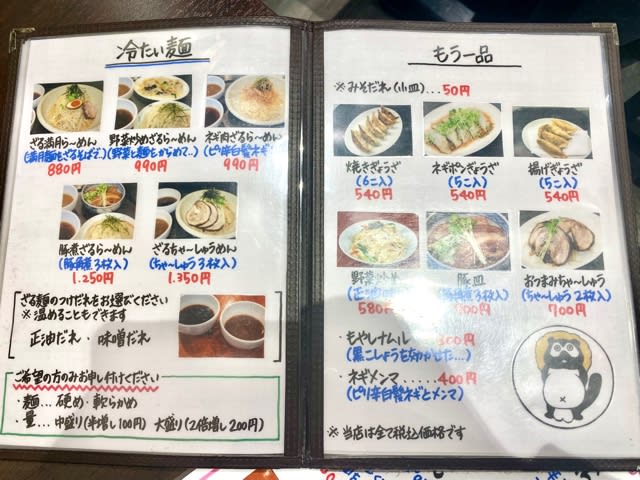 冷たい麺
ざる満月ら〜めん
(満月麺をざるそばで..)
880円
野菜炒めざるら〜めん
(野菜と麺をからめて..)
990円
ネギ肉ざるら〜めん
(ピリ辛白髪ネギ)
990円
豚煮ざるら〜めん
(豚角煮3枚入)
1.250円
ざるちゃ〜しゅうめん
(ちゃ〜しゅう3枚入)
1.350円
ざる麺のつけだれをお選びください
※温めることもできます
正油だれ・味噌だれ
ご希望の方のみお申し付けください
・麺...硬め・軟らかめ
・量...中盛り(半増し100円) 大盛り(2倍増し200円)
もう一品
※みそだれ(小皿)...50円
焼きぎょうざ
(6こ入)
540円
ネギポンぎょうざ
(5こ入)
540円
揚げぎょうざ
(5こ入)
540円
野菜炒め
580円
豚皿
(豚角煮3枚入)
おつまみちゃ〜しゅう
(ちゃ〜しゅう2枚入)
700円
・もやしナムル 300円
(黒こしょうをきかせた...)
・ネギメンマ......400円
(ピリ辛白髪ネギとメンマ)
※当店は全て税込価格です